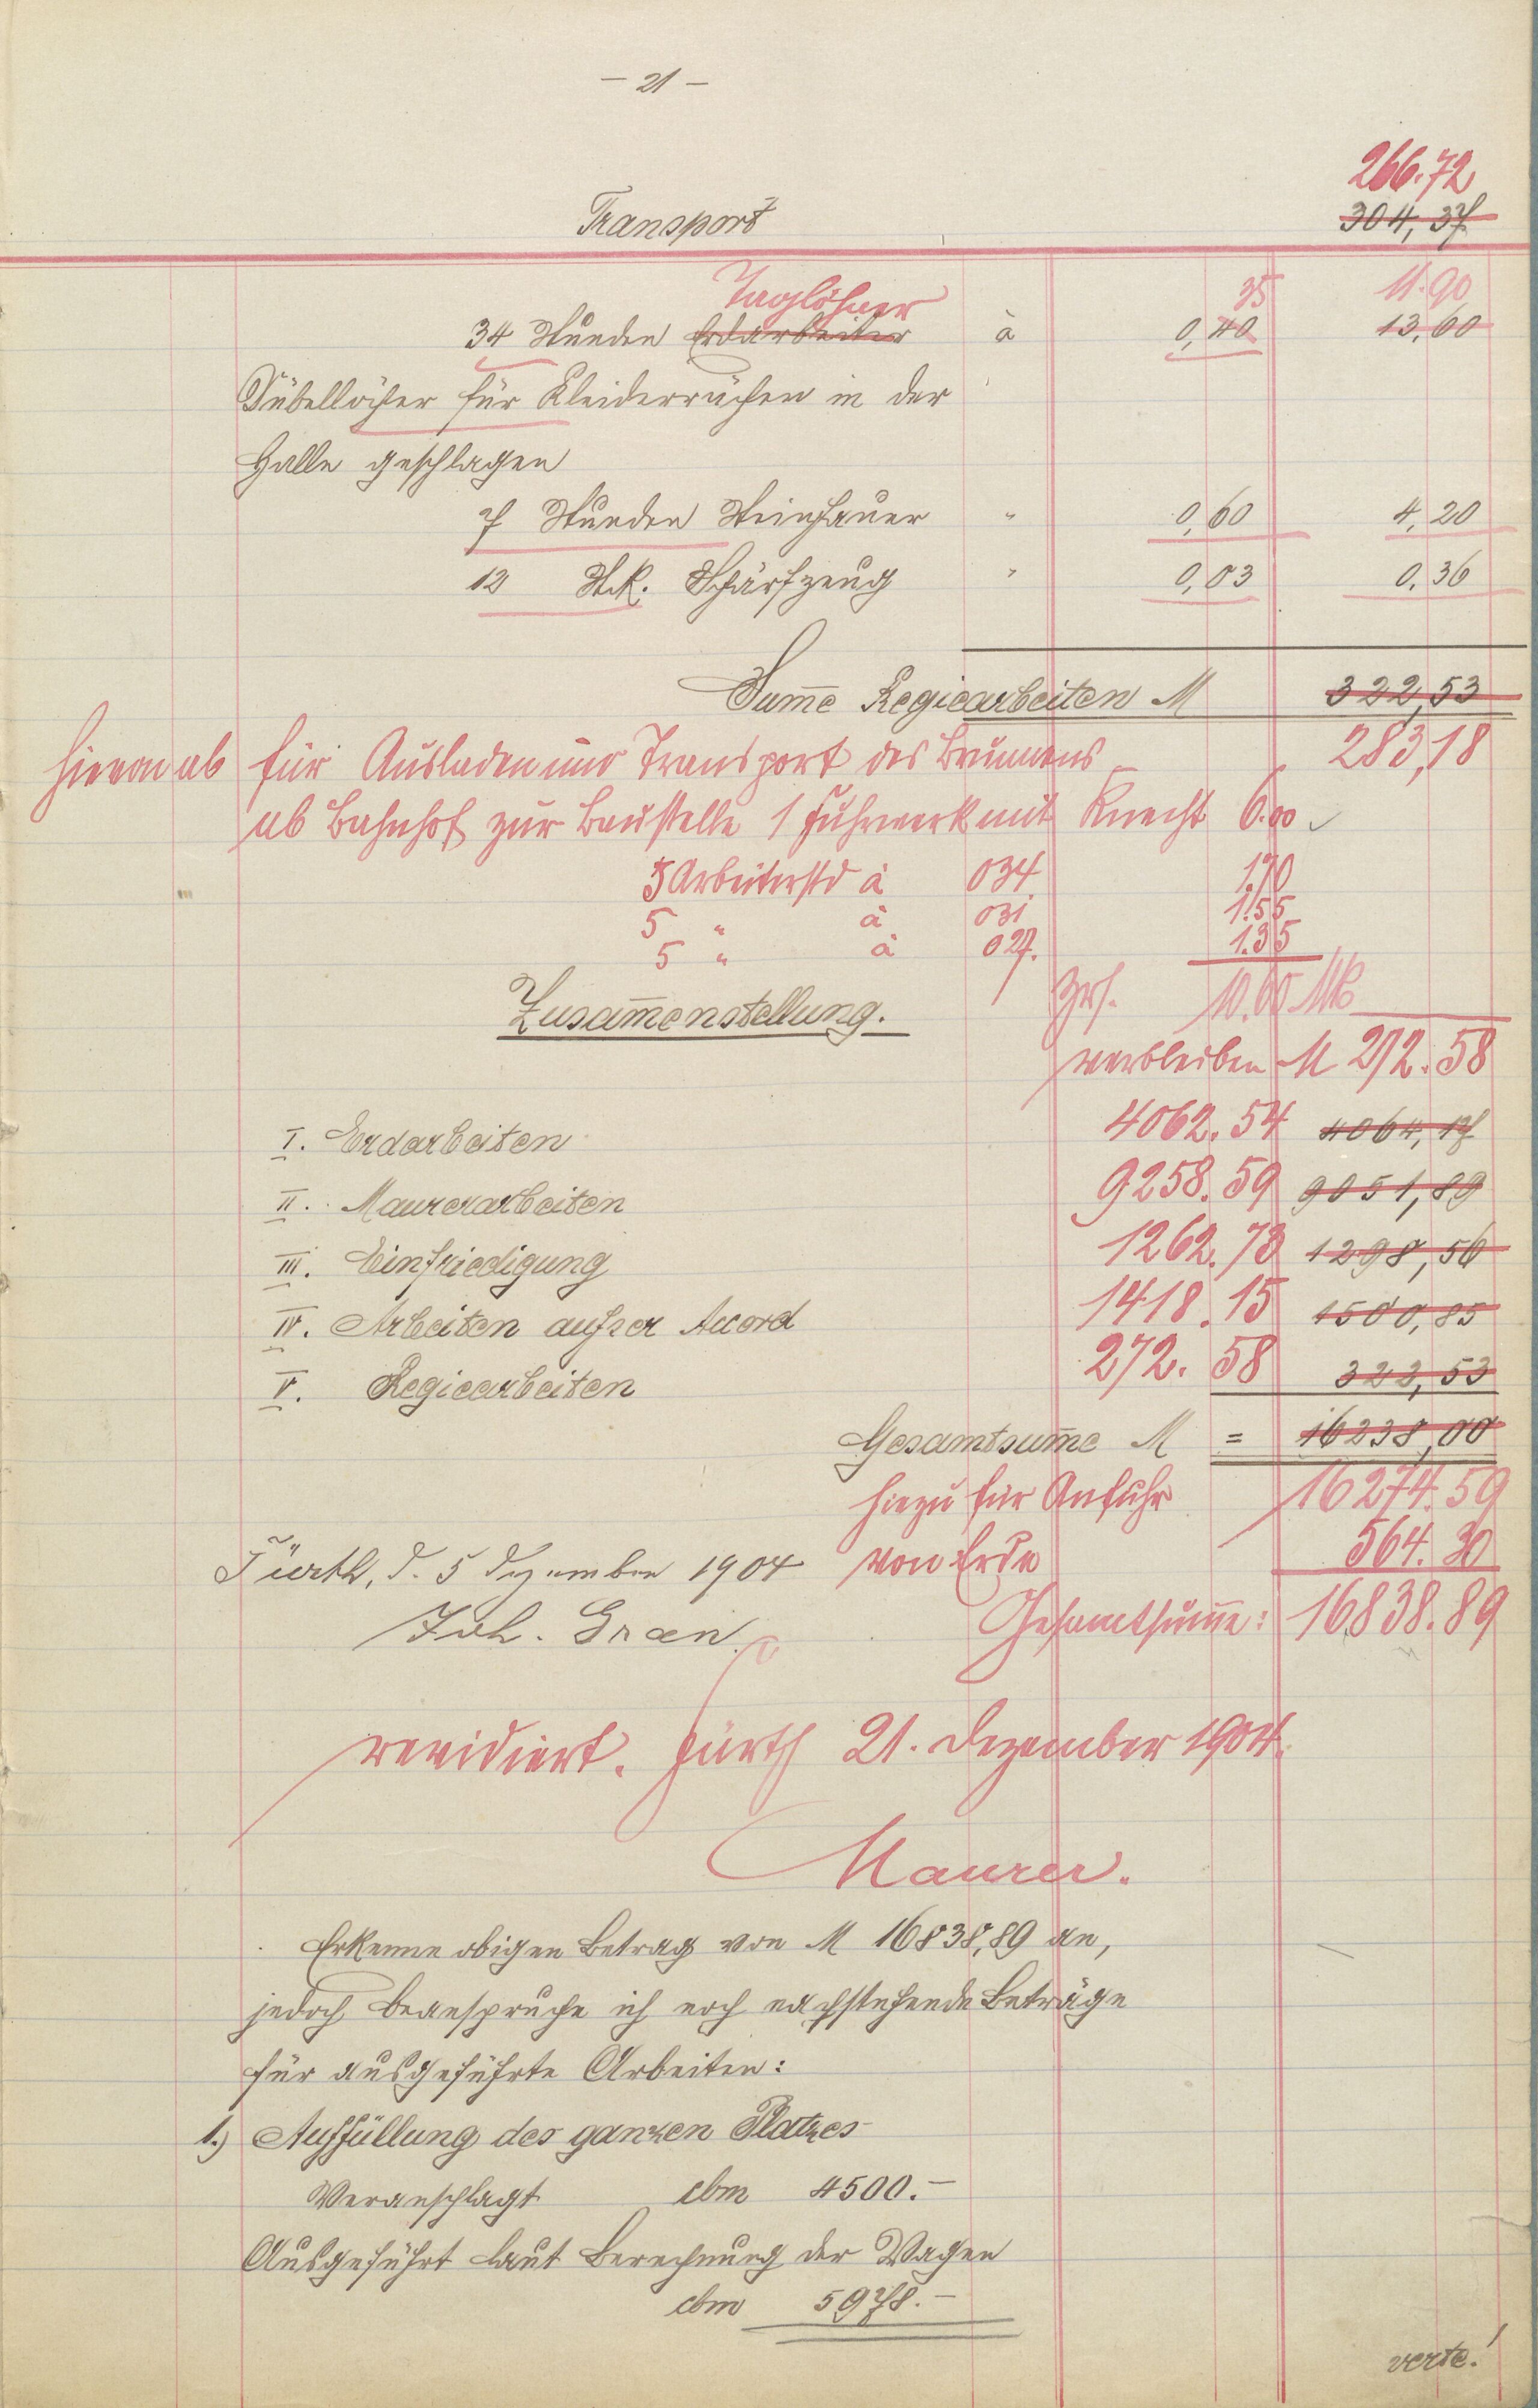 - 21 -
266.72
Transport 304,37
Taglöhner 35 11.90
34 Stunden Erdarbeiter à 0,40 13,60
Dübellöcher für Kleiderrächen in der
Halle geschlagen
7 Stunden Steinhauer " 0,60 4,20
12 Stk. Schärfzeug " 0,03 0,36
Sum̅e Regiearbeiten M 322,53
hievon ab für Ausladen und Transport des Brunnens 283,18
ab Bahnhof zur Baustelle 1 Fuhrwerk mit Knecht 6.00
5 Arbeiterstd à 034 1.70
5 " à 031 1.55
5 " à 027. 1.35
Zus. 10.60 Mk
Zusam̅enstellung.
verbleiben M 272.58
I. Erdarbeiten 4062.54 4064,17
II. Maurerarbeiten 9258.59 9051,89
III. Einfriedigung 1262.73 1298,56
IV. Arbeiten aufser Accord 1418.15 1500,85
V. Regiearbeiten 272.58 322,53
Gesamtsum̅e M = 16238,00
hiezu für Anfuhr 16274.59
von Erde 564.30
Fürth, d. 5 Dezember 1904
Gesamtsum̅e: 16838.89
Joh. Gran
revidiert. Fürth 21. Dezember 1904.
Maurer.
Erkenne obigen Betrag von M 16838,89 an,
jedoch beanspruche ich noch nachstehende Beträge
für ausgeführte Arbeiten:
1.) Auffüllung des ganzen Platzes
Veranschlagt cbm 4500.-
Ausgeführt laut Berechnung der Wagen
cbm 5978.-
verte!